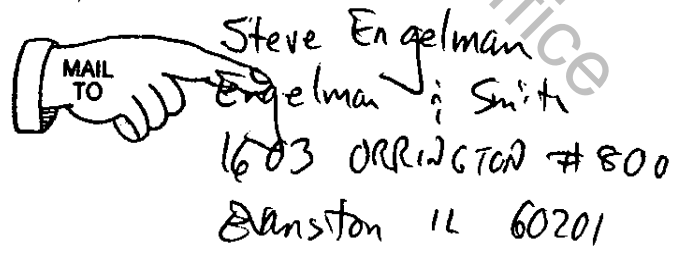 MAIL
TO
Steve Engelman
Engelman & Smith
1603 ORRINGTON #800
Evanston IL 60201
office